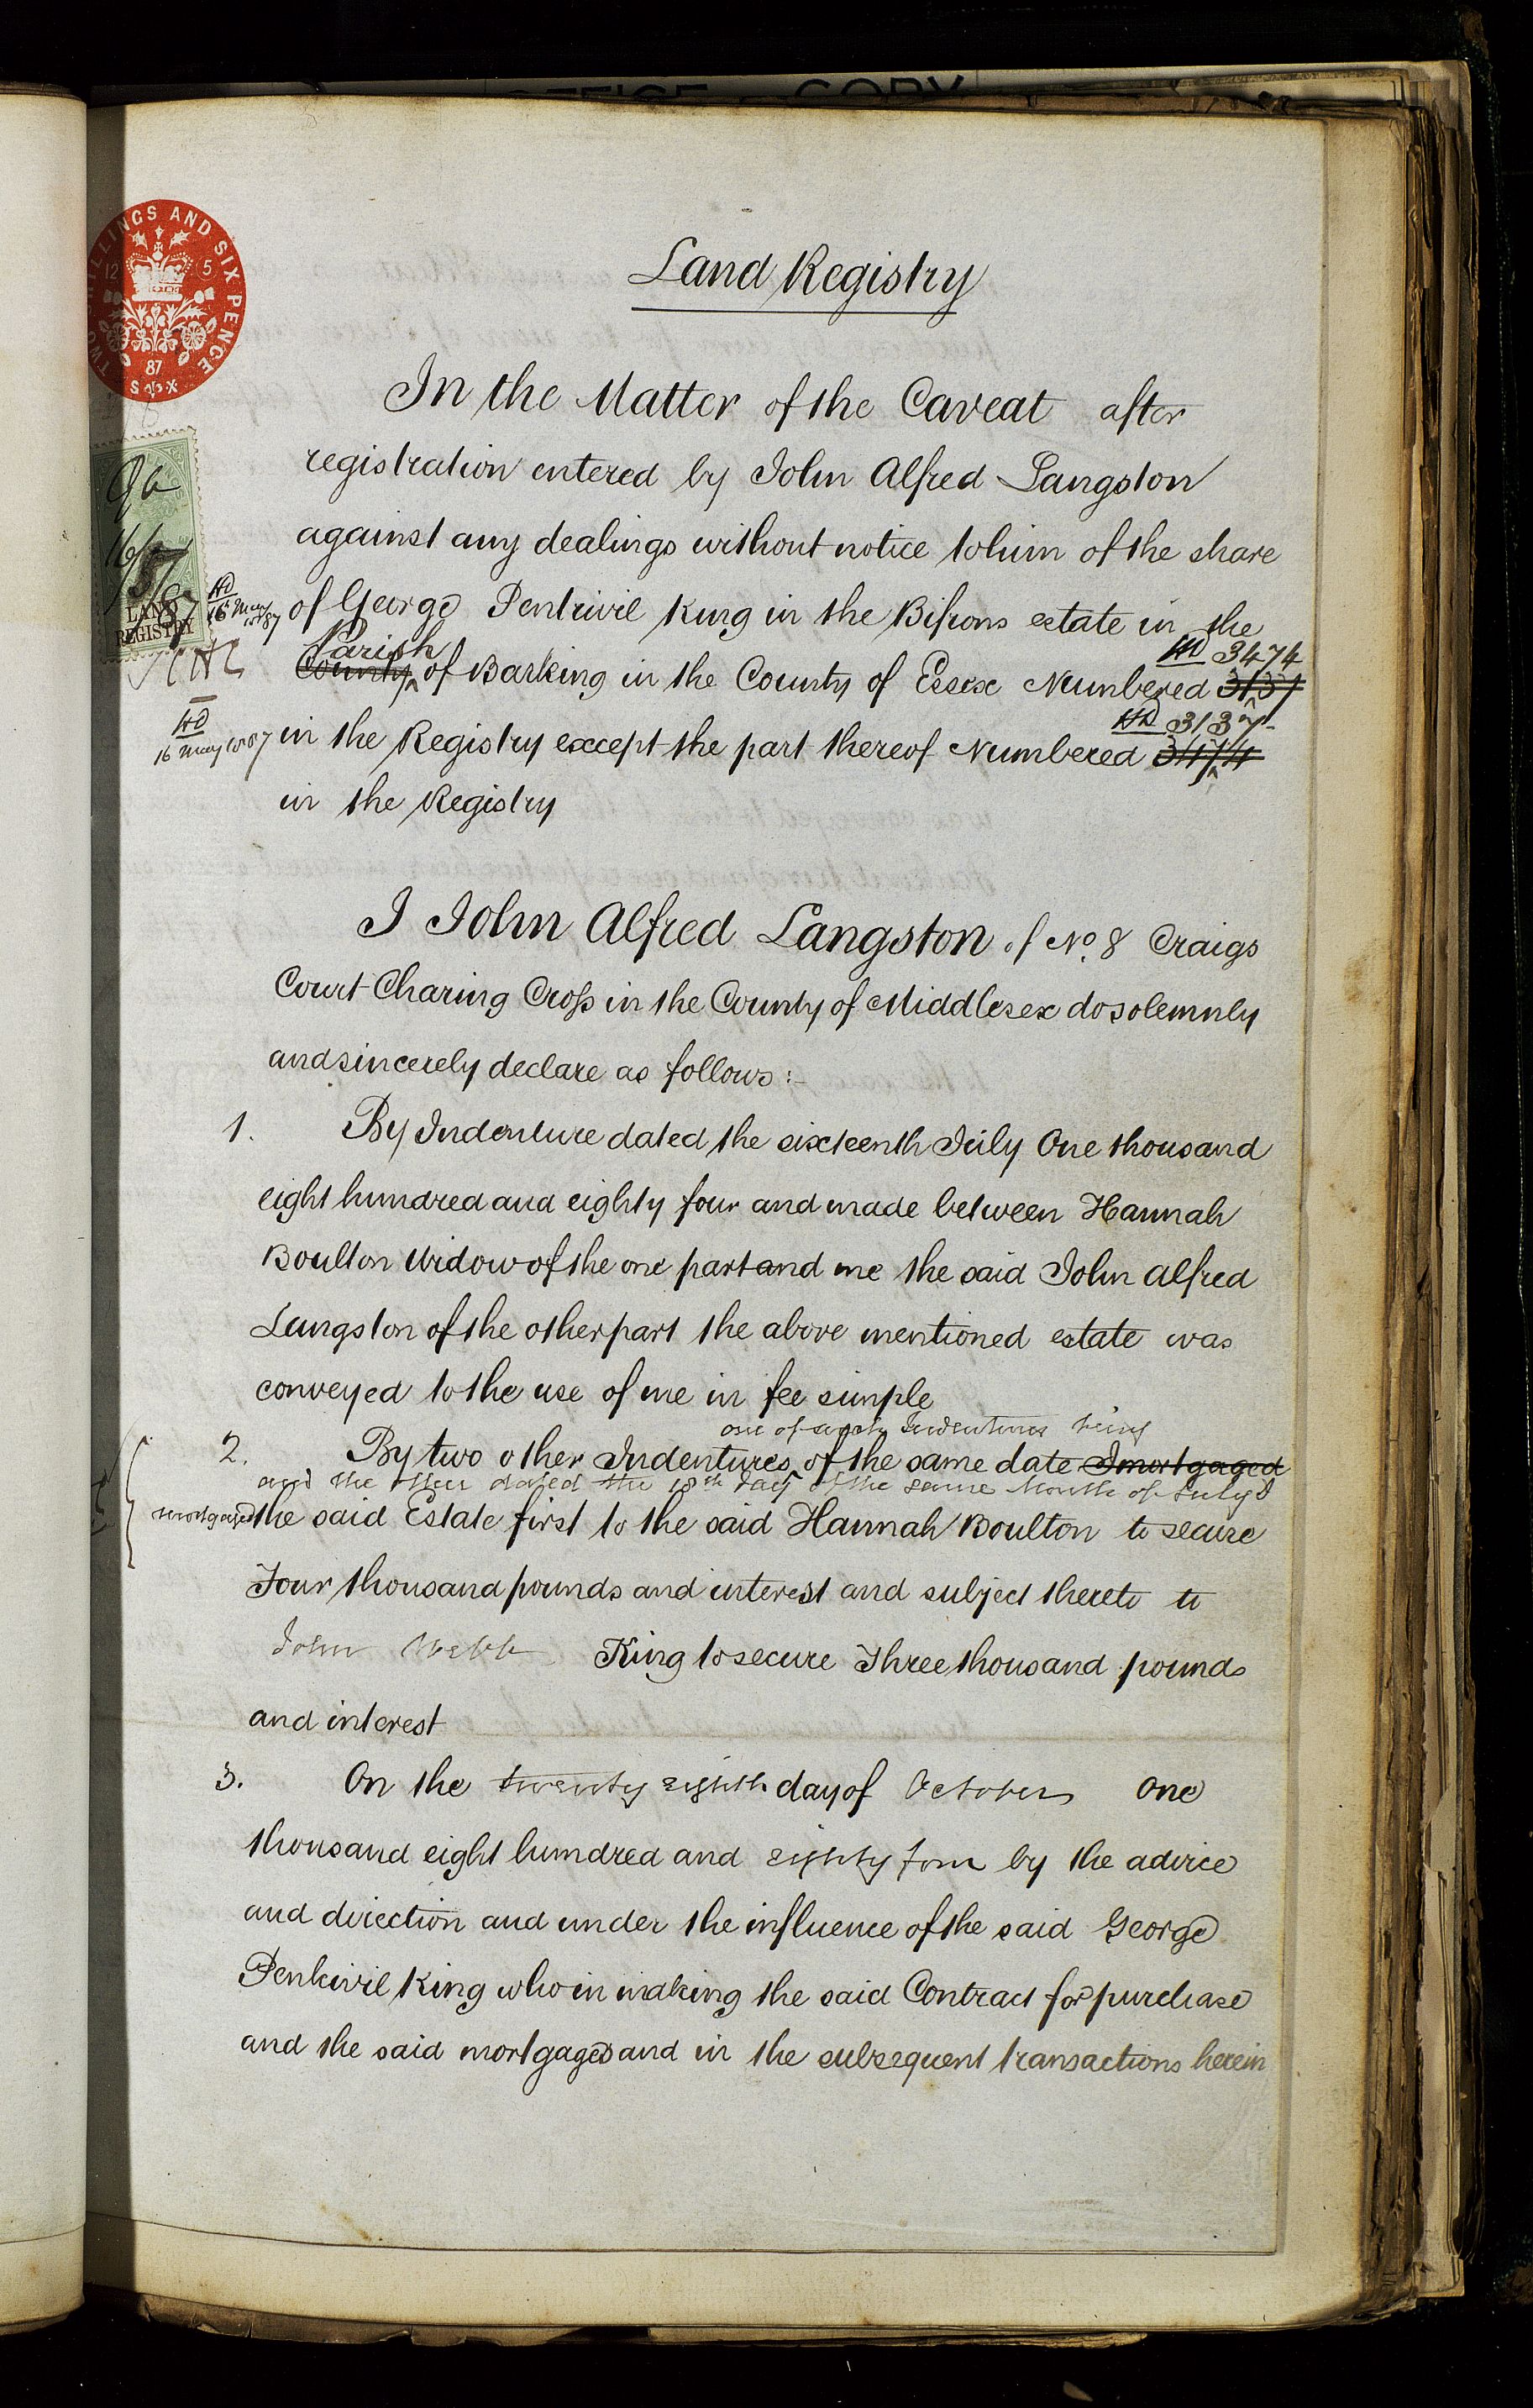 OFFICE COPY
TWO SHILLINGS AND SIX PENCE
12 5
87
Land Registry
In the Matter of the Caveat after
registration entered by John Alfred Langston
against any dealings without notice to him of the share
of George Penkivil King in the Bifrons estate in the
Parish
HD 3474
County of Barking in the County of Essex Numbered 3137
HD 3137
in the Registry except the part thereof Numbered 3474
in the Registry
16/5/87
LAND REGISTRY
HD
16 May 1887
HD
16 May 1887
I John Alfred Langston of No. 8 Craigs
Court Charing Cross in the County of Middlesex do solemnly
and sincerely declare as follows:-
1. By Indenture dated the sixteenth July One thousand
eight hundred and eighty four and made between Hannah
Boulton Widow of the one part and me the said John Alfred
Langston of the other part the above mentioned estate was
conveyed to the use of me in fee simple
one of such Indentures being
2. By two other Indentures of the same date I mortgaged
and the other dated the 18th day of the same Month of July I
mortgaged the said Estate first to the said Hannah Boulton to secure
Four thousand pounds and interest and subject thereto to
John Webb King to secure Three thousand pounds
and interest
3. On the twenty eighth day of October One
thousand eight hundred and eighty four by the advice
and direction and under the influence of the said George
Penkivil King who in making the said Contract for purchase
and the said mortgages and in the subsequent transactions herein